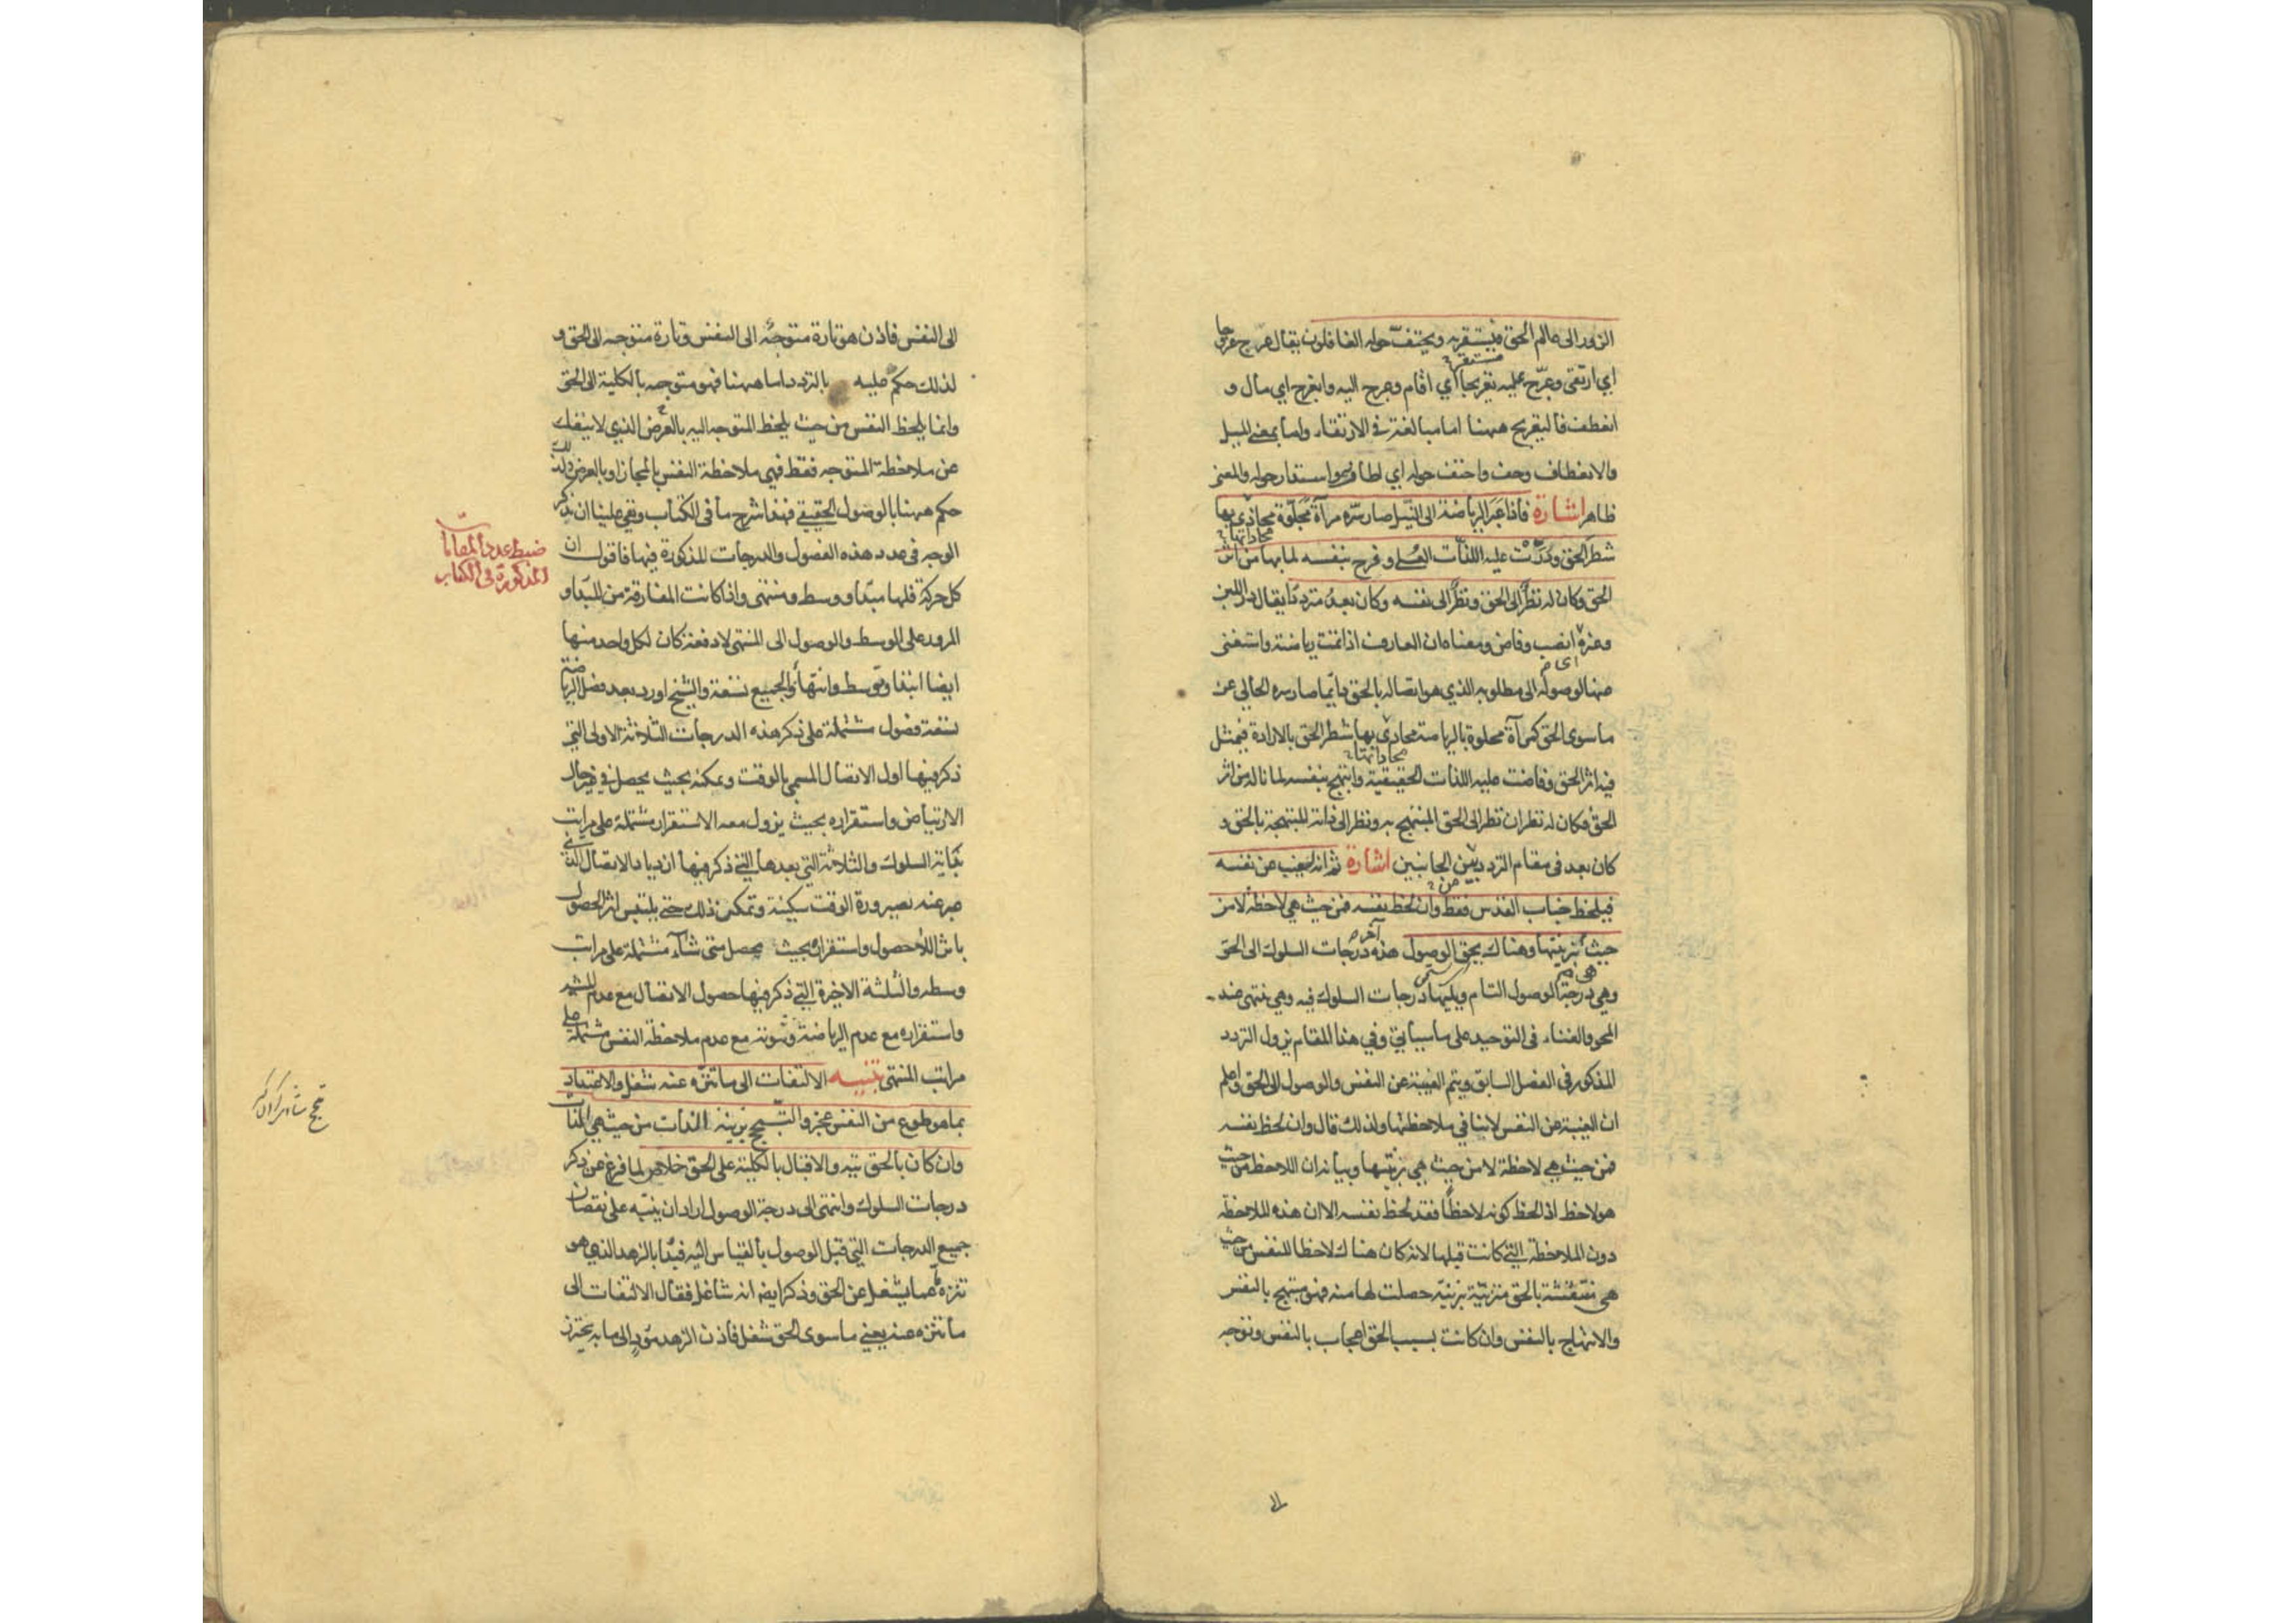 الزور الى عالم الحق فيستقر به ويحتف حوله الغافلون يقال عرج عروجا
اي ارتقى وعرّج عليه تعريجا اي اقام وعرج اليه وانعرج اي مال و
انعطف فالتعريج ههنا اما مبالغة في الارتقاء واما بمعنى الميل
والانعطاف وحف واحتف حوله اي اطافوا واستدار حوله والمعنى
ظاهر اشارة فاذا عَبَر الرياضة الى النيل صار سرّه مرآة مجلوّة محاذي بها
شطر الحق ودرّت عليه اللذات العُلى وفرح بنفسه لما بها من اثر
الحق وكان له نظرٌ الى الحق ونظرٌ الى نفسه وكان بعدُ مترددًا يقال درّ اللبن
وغيره انصب وفاض ومعناه ان العارف اذا تمت رياضته واستغنى
عنها لوصوله الى مطلوبه الذي هو اتصاله بالحق دائما صار سره الخالي عن
ما سوى الحق كمرآة مجلوة بالرياضة محاذي بها شطر الحق بالارادة فيتمثل
فيه اثر الحق وفاضت عليه اللذات الحقيقية وابتهج بنفسه لما ناله من اثر
الحق فكان له نظران نظر الى الحق المبتهج به ونظر الى ذاته المبتهجة بالحق و
كان بعد في مقام التردد بين الجانبين اشارة ثم انه ليغيب عن نفسه
فيلحظ جناب القدس فقط وان لحظ نفسه فمن حيث هي لاحظة لا من
حيث بزينتها وهناك يحق الوصول هذه آخر درجات السلوك الى الحق
وهي درجة الوصول التام ويليها درجات السلوك فيه وهي تنتهي عند
المحو والفناء في التوحيد على ما سيأتي وفي هذا المقام يزول التردد
المذكور في الفصل السابق ويتم الغيبة عن النفس والوصول الى الحق واعلم
ان الغيبة عن النفس لا ينافي ملاحظتها ولذلك قال وان لحظ نفسه
فمن حيث هي لاحظة لا من حيث هي بزينتها وبيانه ان اللاحظ من حيث
هو لاحظ اذا لحظ كونه لاحظًا فقد لحظ نفسه الا ان هذه الملاحظة
دون الملاحظة التي كانت قبلها لانه كان هناك لاحظا للنفس من حيث
هي متنقشة بالحق متزينة بزينة حصلت لها منه فهو مبتهج بالنفس
والابتهاج بالنفس وان كانت بسبب الحق اعجاب بالنفس وتوجه
الى
الى النفس فاذن هو تارة متوجه الى النفس وتارة متوجه الى الحق و
لذلك حكم عليه بالتردد اما ههنا فهو متوجه بالكلية الى الحق
وانما يلحظ النفس من حيث يلحظ المتوجه اليه بالعرض الذي لا ينفك
عن ملاحظة المتوجه فقط فهي ملاحظة النفس بالمجاز او بالعرض ولذلك
حكم ههنا بالوصول الحقيقي فهذا شرح ما في الكتاب وبقي علينا ان نذكر
الوجه في عدد هذه الفصول والدرجات المذكورة فيها فاقول ان
كل حركة فلها مبدأ ووسط ومنتهى واذا كانت المفارقة من المبدأ و
المرور على الوسط والوصول الى المنتهى لا دفعة كان لكل واحد منها
ايضا ابتداء وتوسط وانتهاء والجميع تسعة والشيخ اورد بعد فصل الرياضة
تسعة فصول مشتملة على ذكر هذه الدرجات الثلاثة الاولى التي
ذكر فيها اول الاتصال المسمى بالوقت وتمكنه بحيث يحصل في غير حال
الارتياض واستقراره بحيث يزول معه الاستقرار مشتملة على مراتب
بداية السلوك والثلاثة التي بعدها التي ذكر فيها ازدياد الاتصال الذي
عبر عنه بصيرورة الوقت سكينة وتمكن ذلك حتى يلتبس اثر الحصول
باثر اللاحصول واستقراره بحيث يحصل متى شاء مشتملة على مراتب
وسطه والثلثة الاخيرة التي ذكر فيها حصول الاتصال مع عدم المشية
واستقراره مع عدم الرياضة وثبوته مع عدم ملاحظة النفس مشتملة على
مراتب المنتهى تنبيه الالتفات الى ما تنزّه عنه شغل والاعتداد
بما هو طوع من النفس عجز والتبجح بزينة الذات من حيث هي الذات
وان كان بالحق تيه والاقبال بالكلية على الحق خلاص لما فرغ عن ذكر
درجات السلوك وانتهى الى درجة الوصول اراد ان ينبّه على نقصان
جميع الدرجات التي قبل الوصول بالقياس اليه فبدأ بالزهد الذي هو
تنزه عما يشغل عن الحق وذكر ايضا انه شاغل فقال الالتفات الى
ما تنزه عنه يعني ما سوى الحق شغل فاذن الزهد مؤد الى ما به يحترز
ضبط عدد المقامات
المذكورة في الكتاب